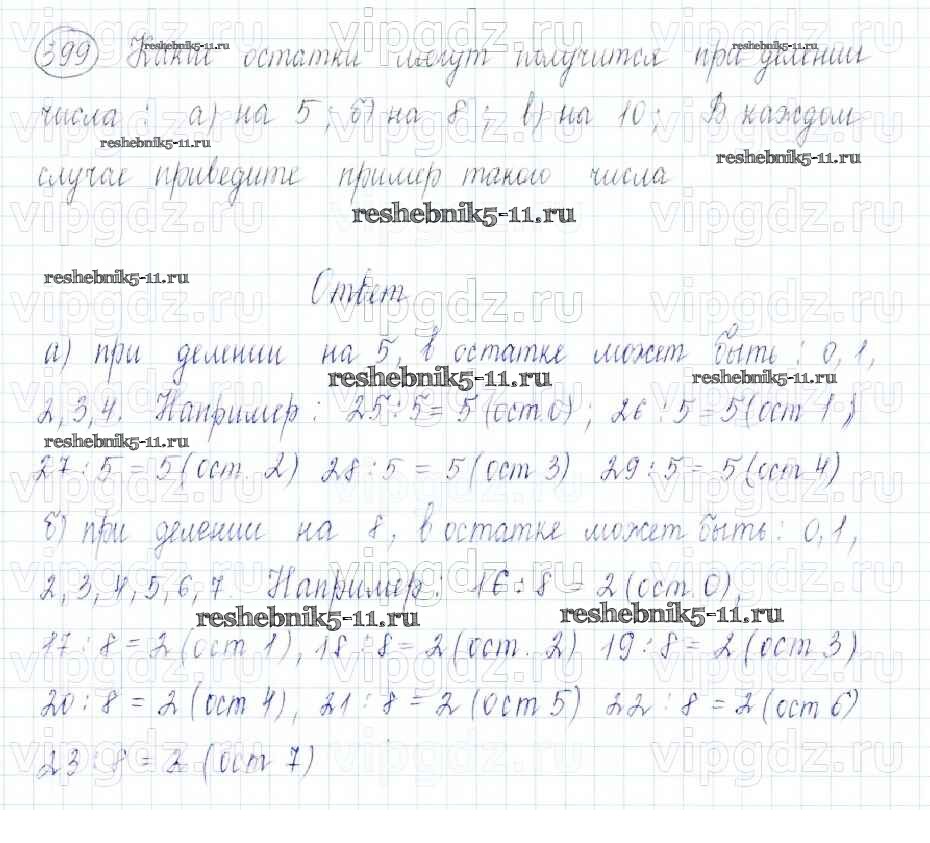 399 Какие остатки могут получится при делении
числа: а) на 5; б) на 8; в) на 10; В каждом
случае приведите пример такого числа
Ответ
а) при делении на 5, в остатке может быть: 0, 1,
2, 3, 4. Например: 25:5=5(ост.0); 26:5=5(ост 1)
27:5=5(ост. 2) 28:5=5(ост 3) 29:5=5(ост 4)
б) при делении на 8, в остатке может быть: 0, 1,
2, 3, 4, 5, 6, 7. Например: 16:8=2(ост.0),
17:8=2(ост 1), 18:8=2(ост. 2) 19:8=2(ост 3)
20:8=2(ост 4), 21:8=2(ост 5) 22:8=2(ост 6)
23:8=2(ост 7)
reshebnik5-11.ru
vipgdz.ru